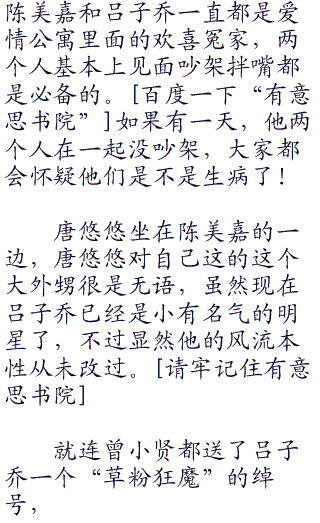 陈美嘉和吕子乔一直都是爱
情公寓里面的欢喜冤家，两
个人基本上见面吵架拌嘴都
是必备的。[百度一下“有意
思书院”]如果有一天，他两
个人在一起没吵架，大家都
会怀疑他们是不是生病了！
唐悠悠坐在陈美嘉的一
边，唐悠悠对自己这的这个
大外甥很是无语，虽然现在
吕子乔已经是小有名气的明
星了，不过显然他的风流本
性从未改过。[请牢记住有意
思书院]
就连曾小贤都送了吕子
乔一个“草粉狂魔”的绰
号，